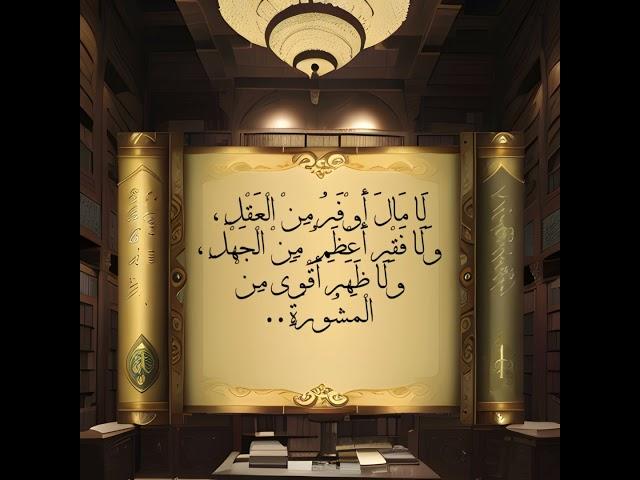 لَا مَالَ أَوْفَرُ مِنْ الْعَقْلِ،
وَلَا فَقْرَ أَعْظَمُ مِنْ الْجَهْلِ،
وَلَا ظَهْرَ أَقْوَى مِنْ
الْمَشُورَةِ..